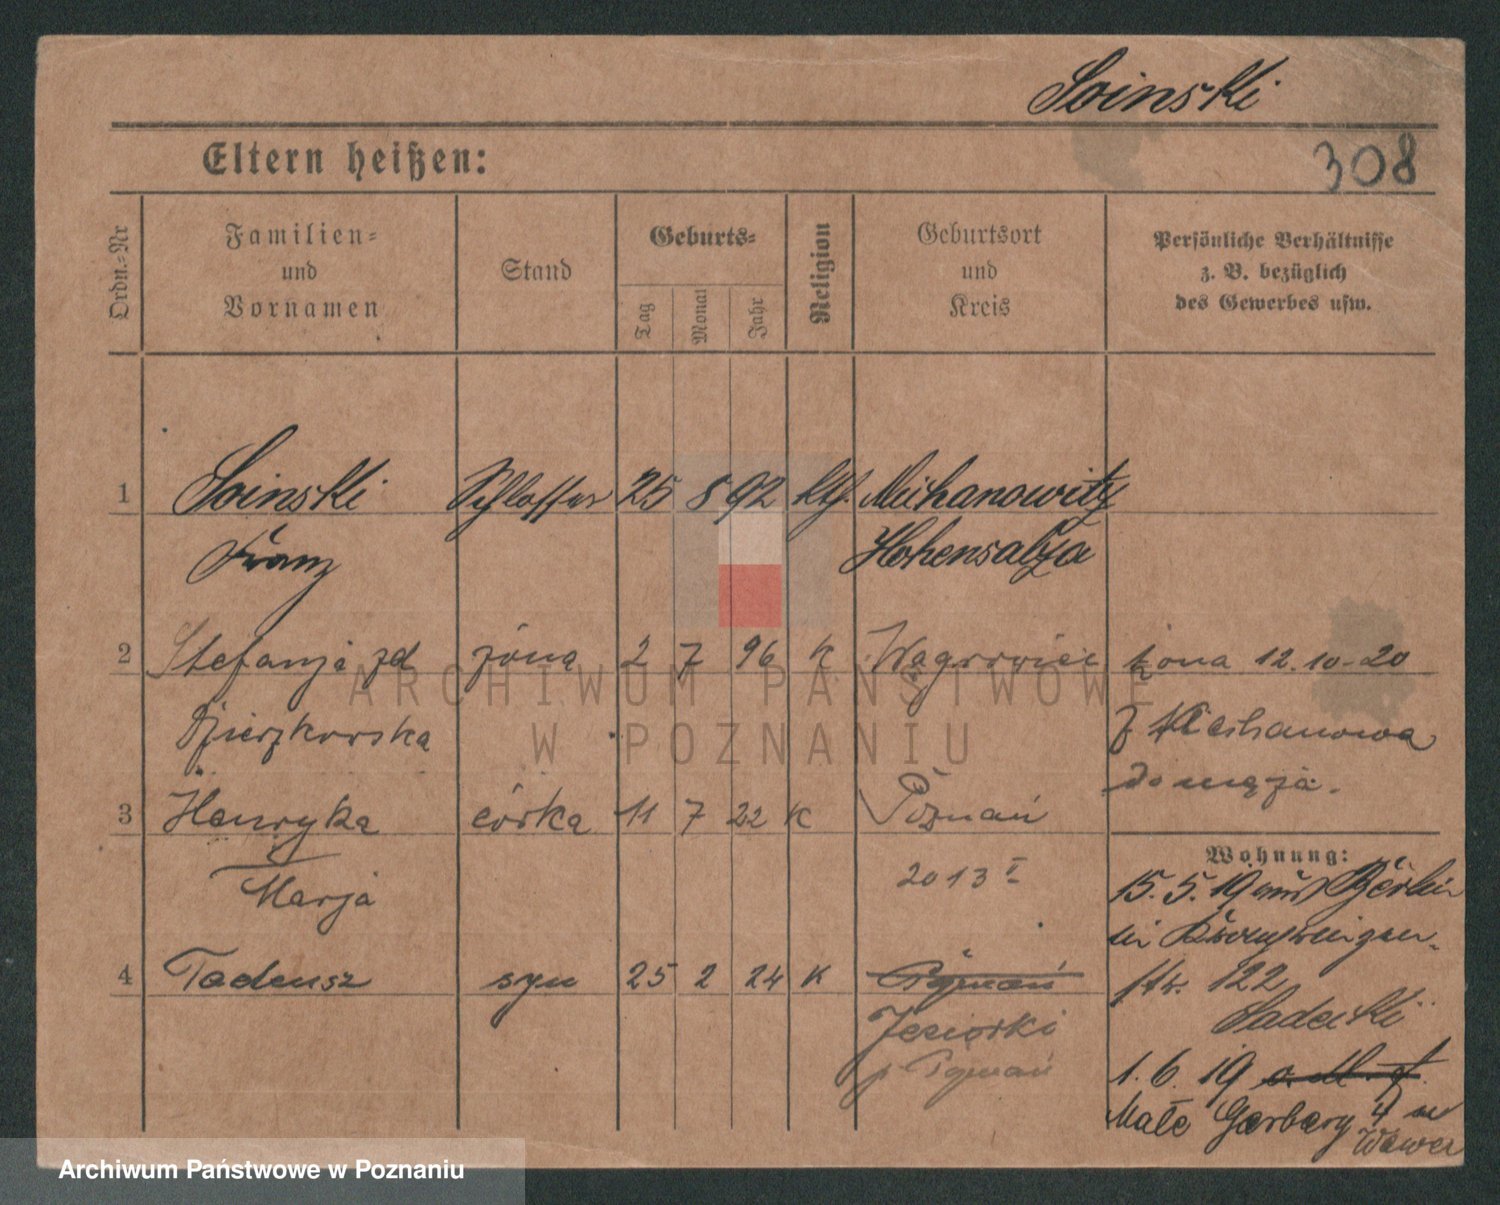 Soinski
Eltern heißen:
308
Ordn.-Nr
Familien-
und
Vornamen
Stand
Geburts-
Tag
Monat
Jahr
Religion
Geburtsort
und
Kreis
Persönliche Verhältnisse
z. B. bezüglich
des Gewerbes usw.
1 Soinski Schlosser 25 8 92 kth. Meihanowitz
Franz Hohensalza
2 Stefanja zd żona 2 7 96 K Wągrowiec żona 12.10-20
Dzierzkowska z
do męża.
3 Henryka córka 11 7 22 K Poznań
Marja
2013 I
4 Tadeusz syn 25 2 24 K Poznań
Jeziorki
p Poznań
Wohnung:
15. 5. 19 aus Berlin
str. 122
Sadecki
1. 6. 19
Małe Garbary 4
ARCHIWUM PAŃSTWOWE
W POZNANIU
Archiwum Państwowe w Poznaniu